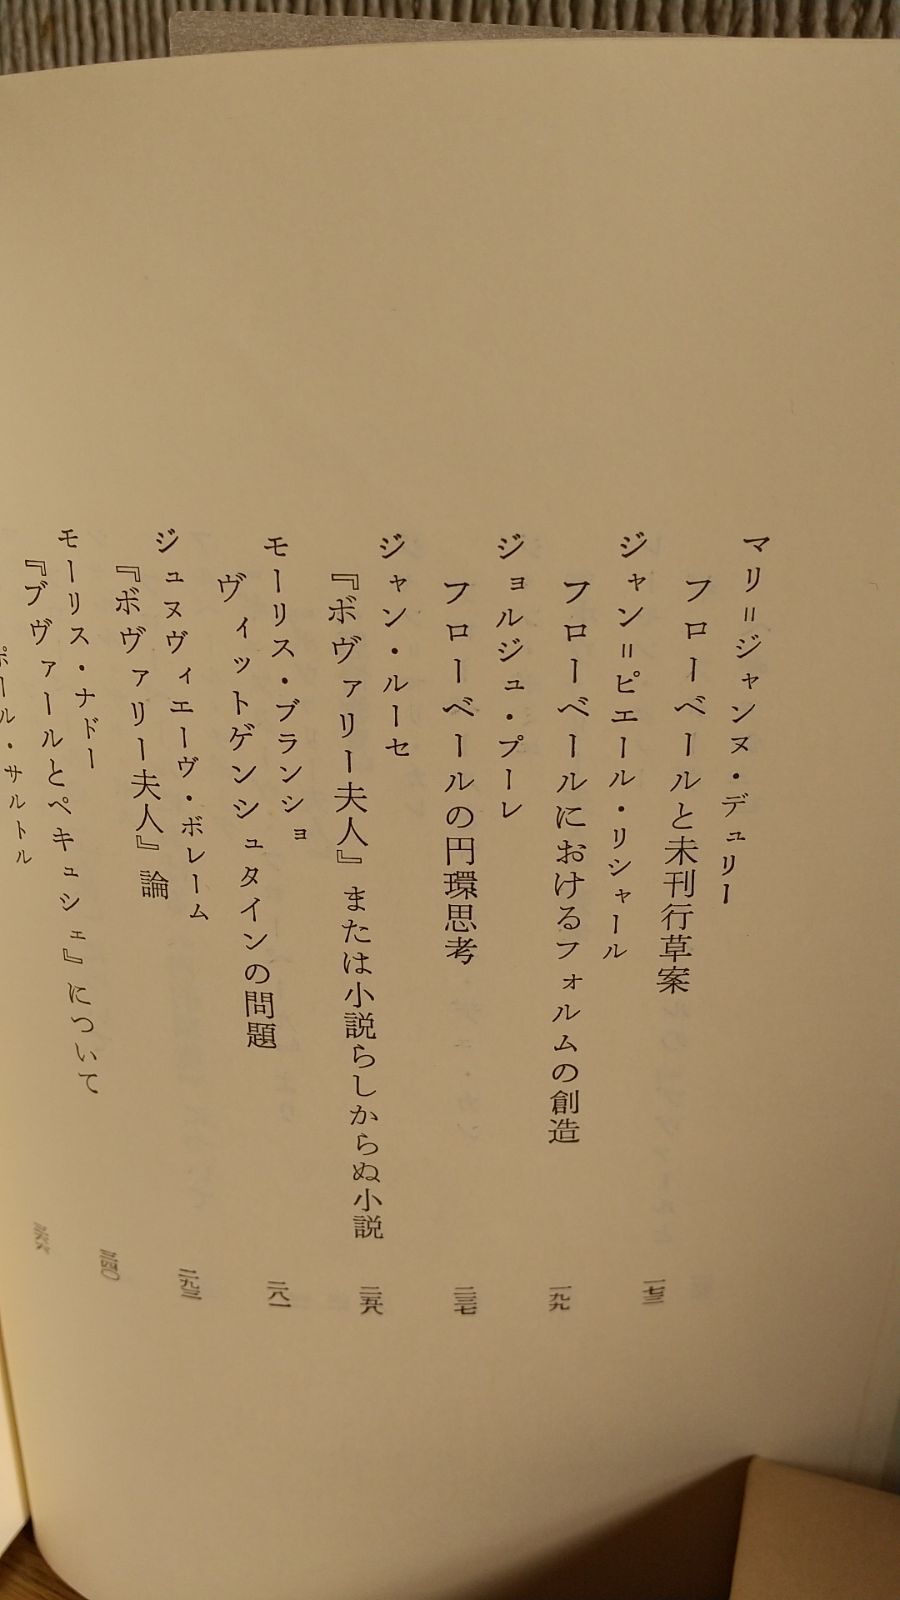 マリ＝ジャンヌ・デュリー
フローベールと未刊行草案
一七三
ジャン＝ピエール・リシャール
フローベールにおけるフォルムの創造
一九九
ジョルジュ・プーレ
フローベールの円環思考
二三七
ジャン・ルーセ
『ボヴァリー夫人』または小説らしからぬ小説
二五八
モーリス・ブランショ
ヴィットゲンシュタインの問題
二八一
ジュヌヴィエーヴ・ボレーム
『ボヴァリー夫人』論
二九三
モーリス・ナドー
『ブヴァールとペキュシェ』について
三四〇
ポール・サルトル